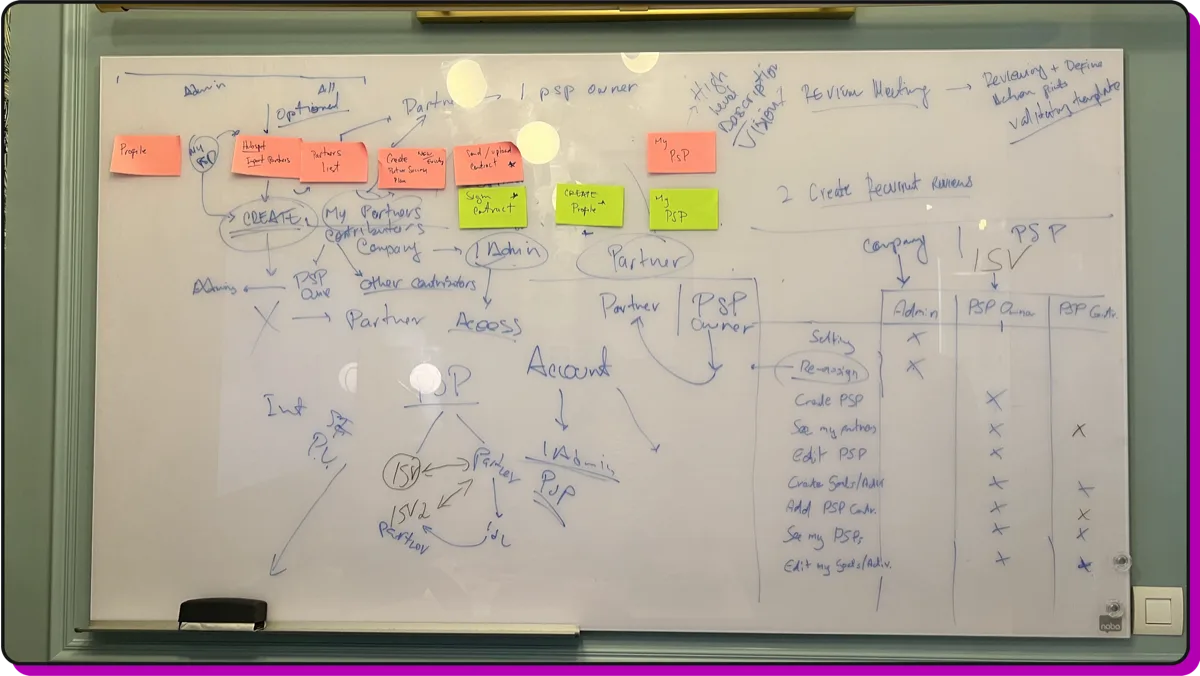 Admin
All
Optional
Partner → 1 psp owner
High
level
Description
Vision?
Review Meeting → Reviewing + Define
Action points
Validating template
Profile
My
PSP
Hubspot
Import Partners
Partners
List
Create New
Plan
Send/upload
Contract
My
PSP
Sign
Contract
CREATE
Profile
My
PSP
2 Create Recurrent Reviews
CREATE
My Partners
Contributors
Company → 1 Admin
Partner
Admins
PSP
Other contributors
X → Partner Access
Partner | PSP
Owner
Company | PSP
ISV
Admin | PSP Owner | PSP Contr.
Setting X
Re-assign X
Create PSP X
See my partners X X
Edit PSP X
Create Goals/Activ X X
Add PSP Contr. X X
See my PSPs X X
Edit my Goals/Activ. X X
PSP
Int
P.V.
ISV
Partner
ISV2
Partner
Account
1 Admin
PSP
nobo